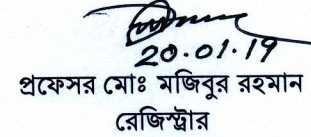 20.01.19
প্রফেসর মোঃ মজিবুর রহমান
রেজিস্ট্রার